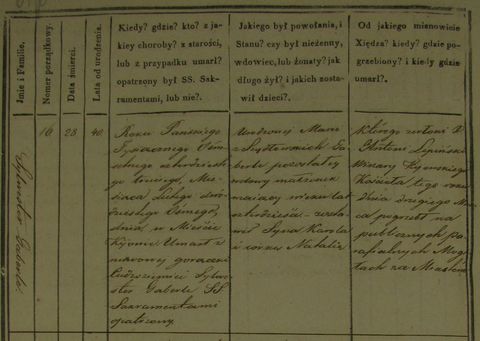 Imie i Familie.
Numer porządkowy.
Data śmierci.
Lata od urodzenia.
Kiedy? gdzie? kto? z ja-
kiey choroby? z starości,
lub z przypadku umarł?
opatrzony był SS. Sa-
kramentami, lub nie?.
Jakiego był powołania, i
Stanu? czy był nieżenny,
wdowiec, lub żonaty? jak
długo żył? i jakich zosta-
wił dzieci?.
Od jakiego mianowicie
Xiędza? kiedy? gdzie po-
grzebiony? i kiedy gdzie
umarł?.
Sylwester Gaberle.
16
28
40
Roku Pańskiego
Tysiącznego Ośm-
setnego czterdzieste-
go trzeciego, Mie-
siąca Lutego dwu-
dziestego Osmego,
dnia w Mieście
Kijowie Umarł z
nerwowej gorączki
Cudzoziemiec Sylwe-
ster Gaberle SS.
Sakramentami
opatrzony.
Urodzonej Marii
z Ga-
berle pozostałej
wdowy małżonek
mający wieku lat
czterdzieści zosta-
wił Syna Karola
i córkę Natalię
Którego zwłoki X.
Antoni Lipiński
Wikary Kijowskiego
Kościoła tego roku
Dnia drugiego Mar-
ca pogrzebł na
publicznych pa-
rafialnych Mogi-
łach za Miastem